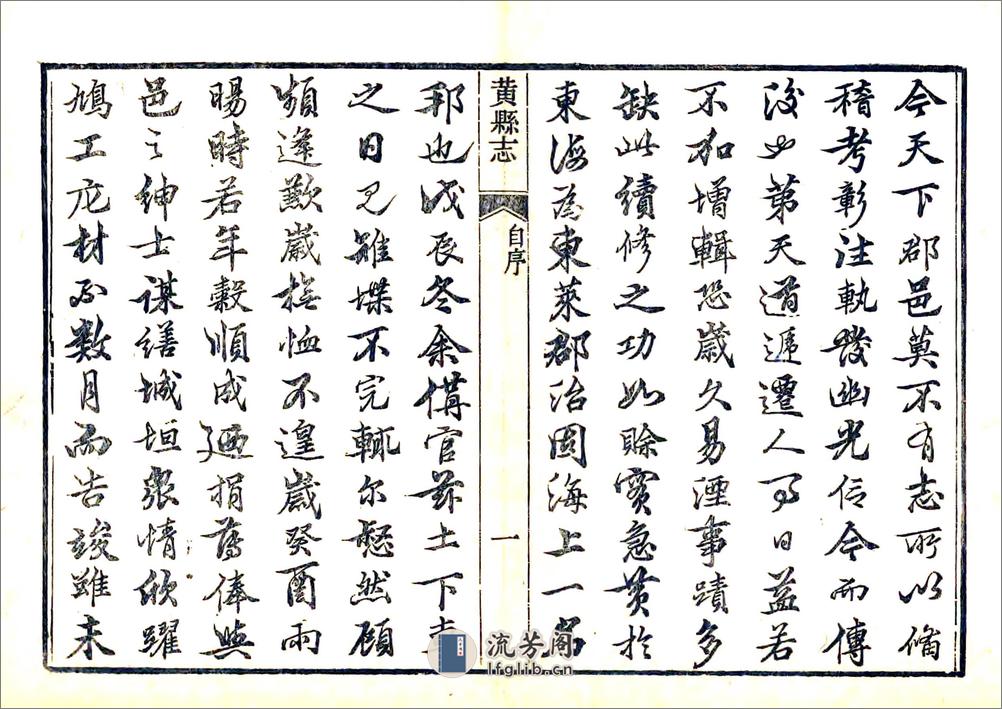 今天下郡邑莫不有志所以備
稽考彰往軌發幽光信今而傳
後也第天道遞遷人事日益若
不加增輯恐歲久易湮事蹟多
缺此續修之功如賒實急黃於
東海為東萊郡治固海上一名
黄縣志 自序 一
邦也戊辰冬余備官茲土下車
之日見雉堞不完輒尔然顧
頻逢歉歲撫恤不遑歲癸酉雨
暘時若年穀順成迺捐薄俸與
邑之紳士謀繕城垣衆情欣躍
鳩工庀材不數月而告竣雖未
流芳阁
lfglib.cn